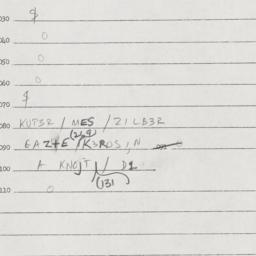 030 $
040 0
050 0
060 0
070 $
080 KUT3R / MES / ZILB3R
090 GAZTE (268) / K3ROS ; N
100 A KNOJT / / D1
110 0 (131